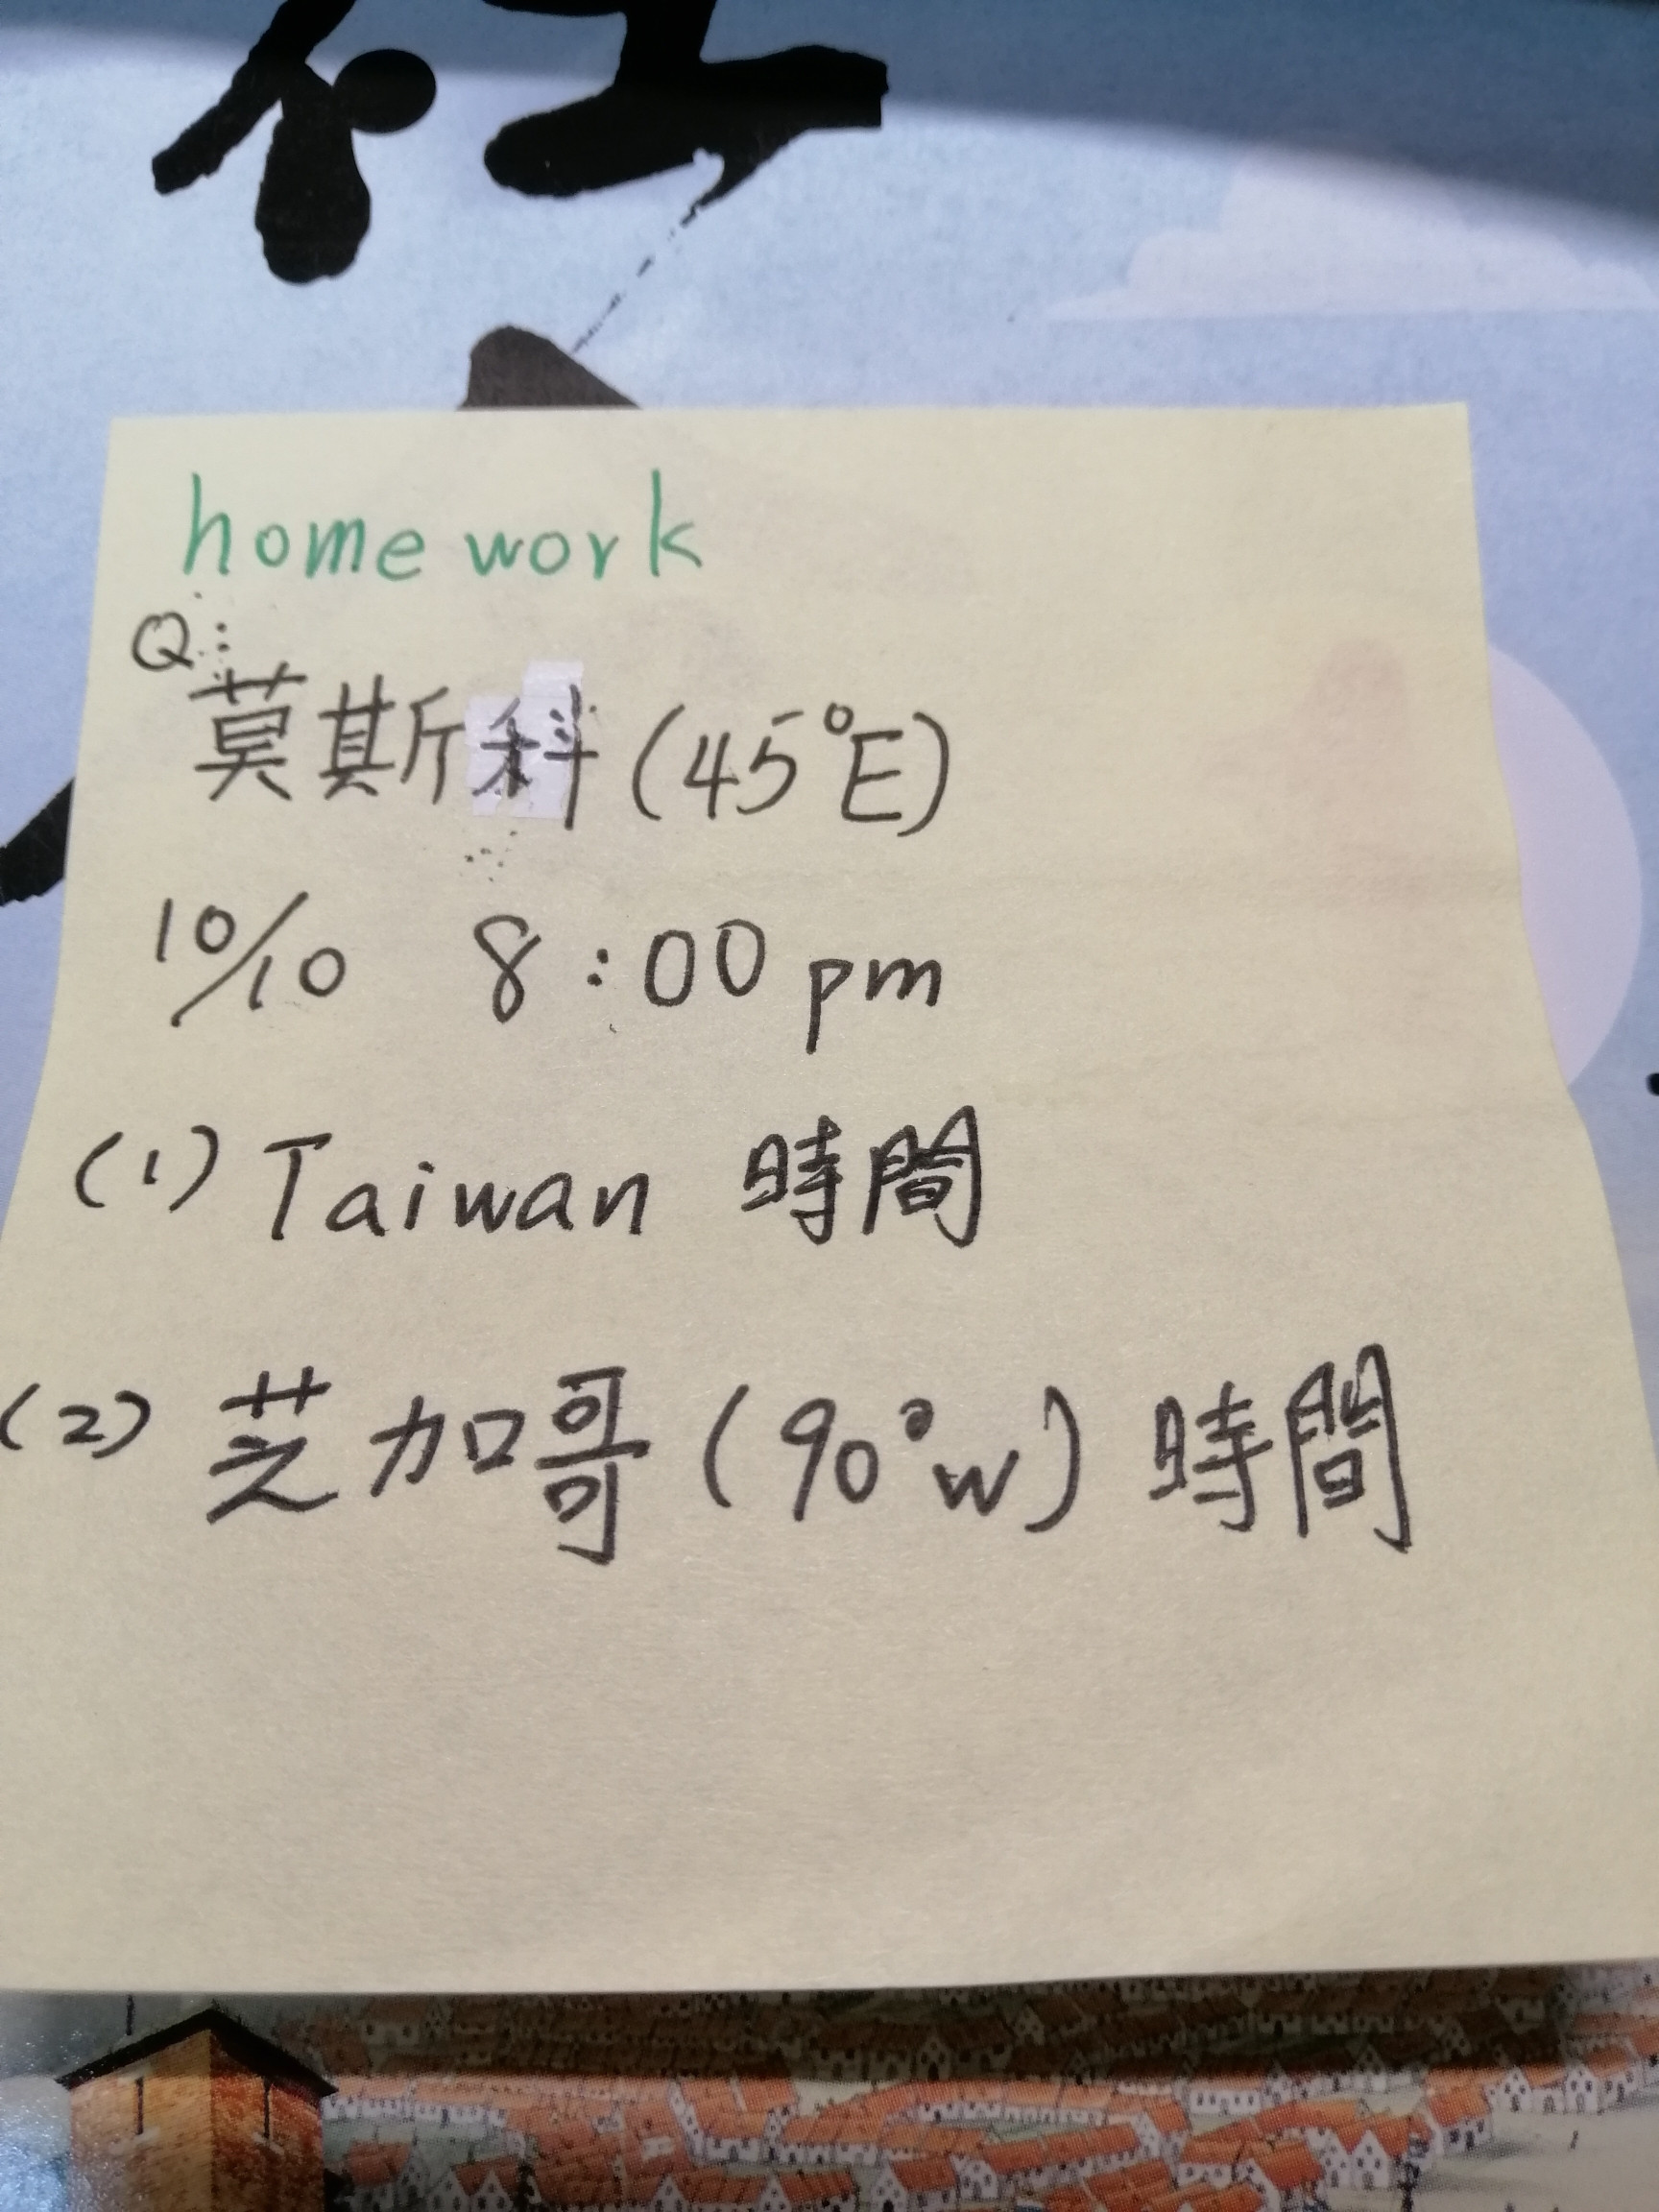 homework
Q:
莫斯科(45°E)
10/10 8:00pm
(1) Taiwan 時間
(2) 芝加哥(90°w) 時間